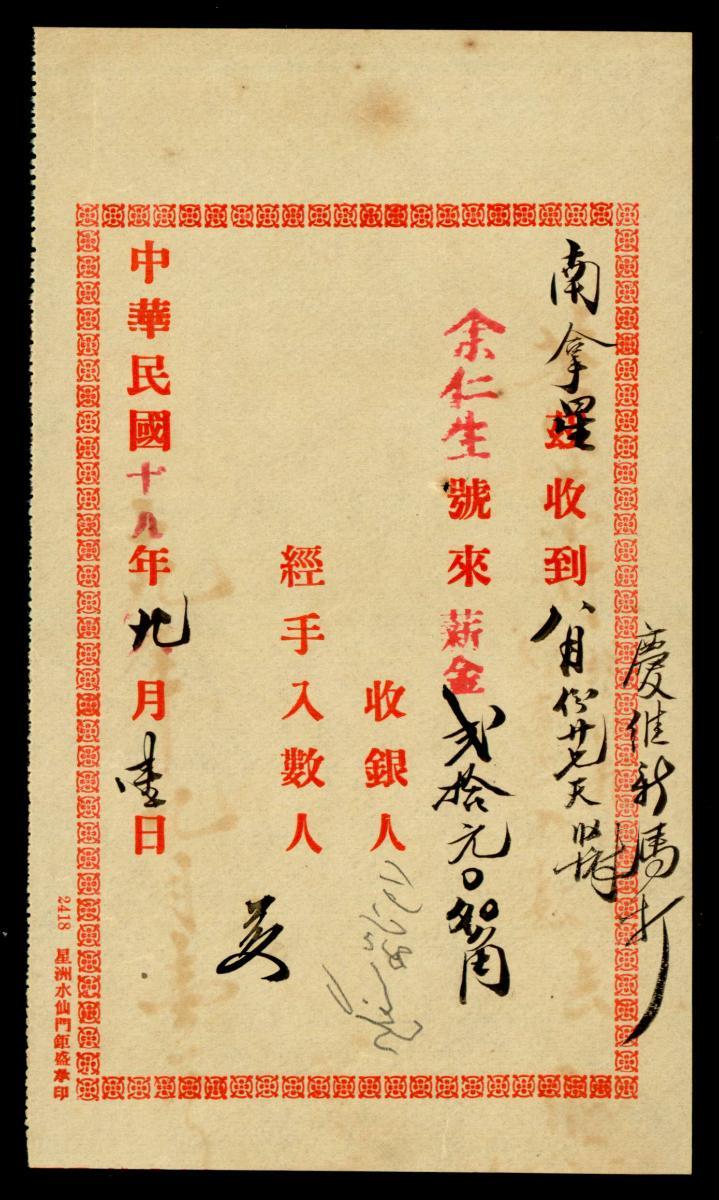 慶佳新馬打
南拿星茲收到八月份廿七天
余仁生號來薪金弍拾元〇角
收銀人
經手入數人
中華民國十八年九月壹日
2418 星洲水仙門鉅盛承印